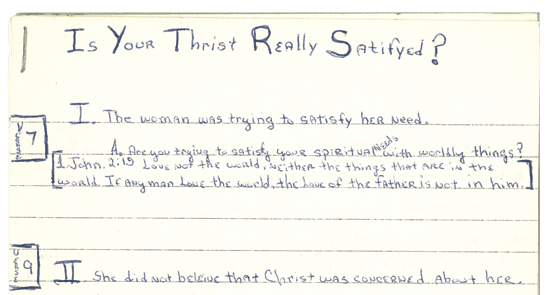 Is Your Thrist Really Satifyed?
I. The woman was trying to satisfy her need.
7
A. Are you trying to satisfy your spiritual needs with worldly things?
[1 John, 2:15 Love not the world, neither the things that are in the
world If any man love the world, the love of the father is not in him.]
9
II She did not beleive that Christ was concerned about her.